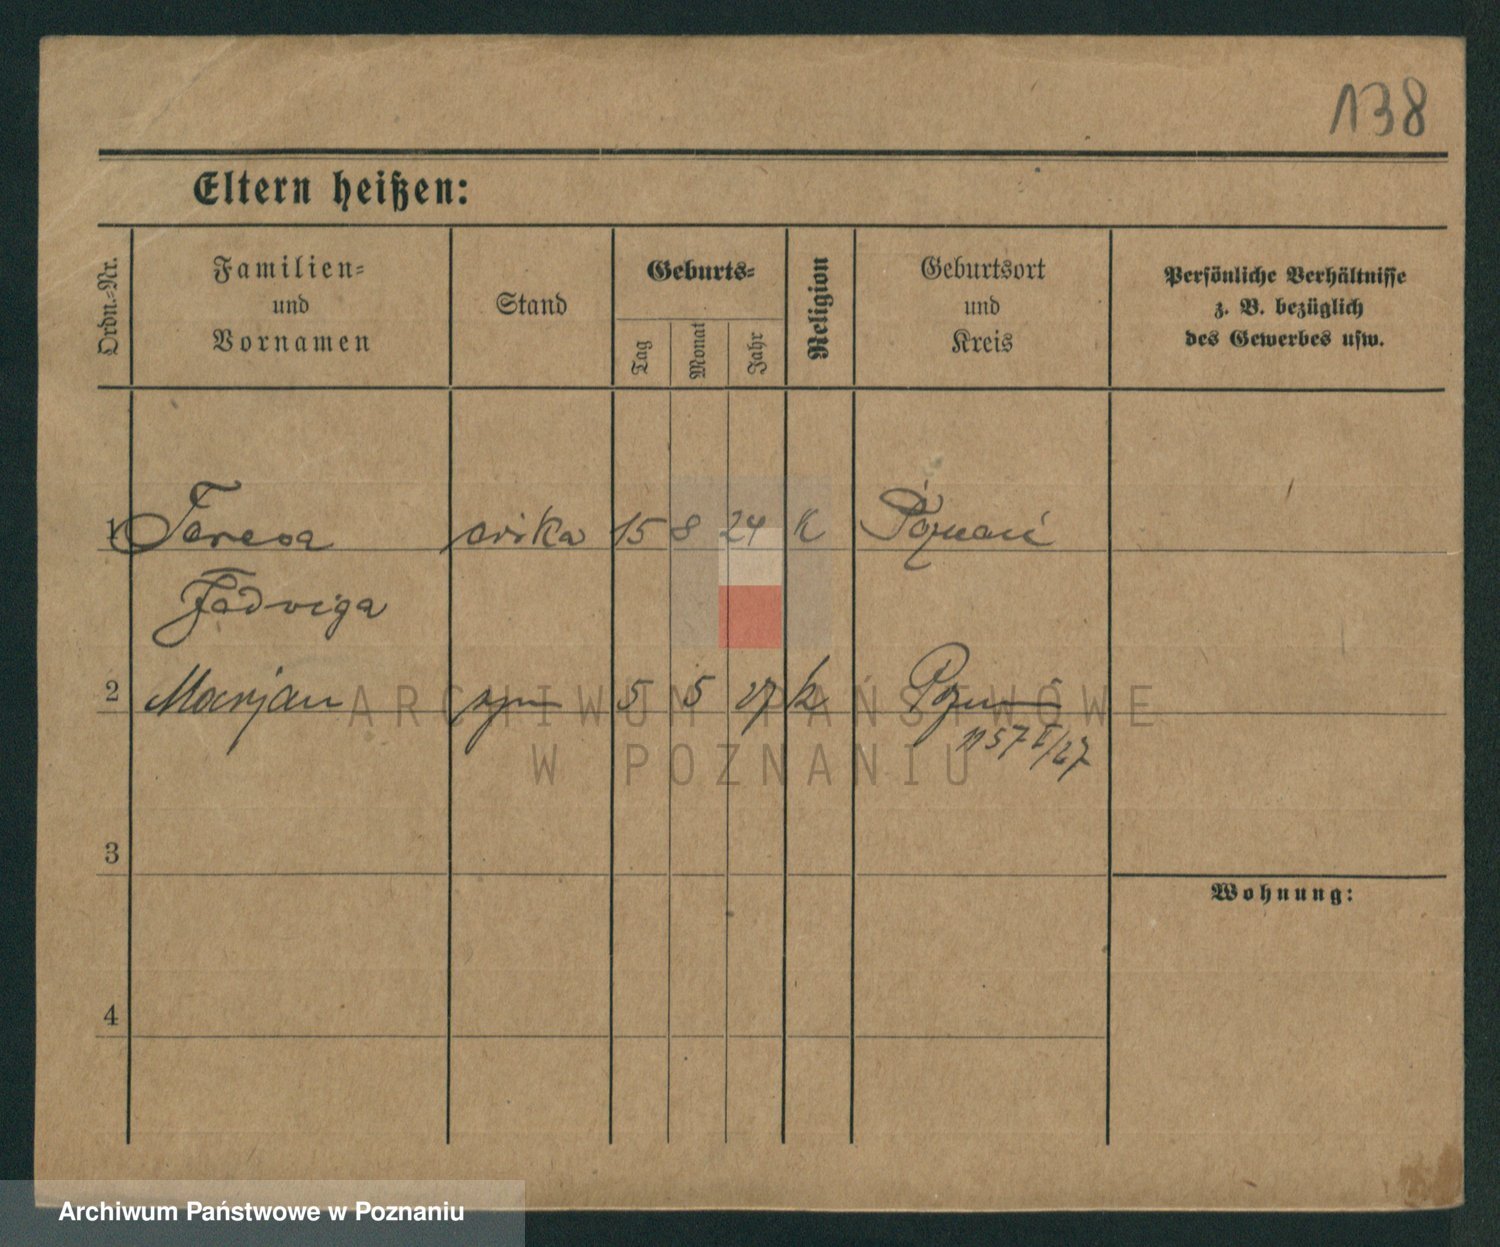 138
Eltern heißen:
Ordn.-Nr.
Familien-
und
Vornamen
Stand
Geburts-
Tag
Monat
Jahr
Religion
Geburtsort
und
Kreis
Persönliche Verhältnisse
z. B. bezüglich
des Gewerbes usw.
1 Teresa córka 15 8 24 k Poznań
Jadwiga
2 Marjan syn 5 5 27 k Poznań
1957 I/27
3
Wohnung:
4
ARCHIWUM PAŃSTWOWE
W POZNANIU
Archiwum Państwowe w Poznaniu